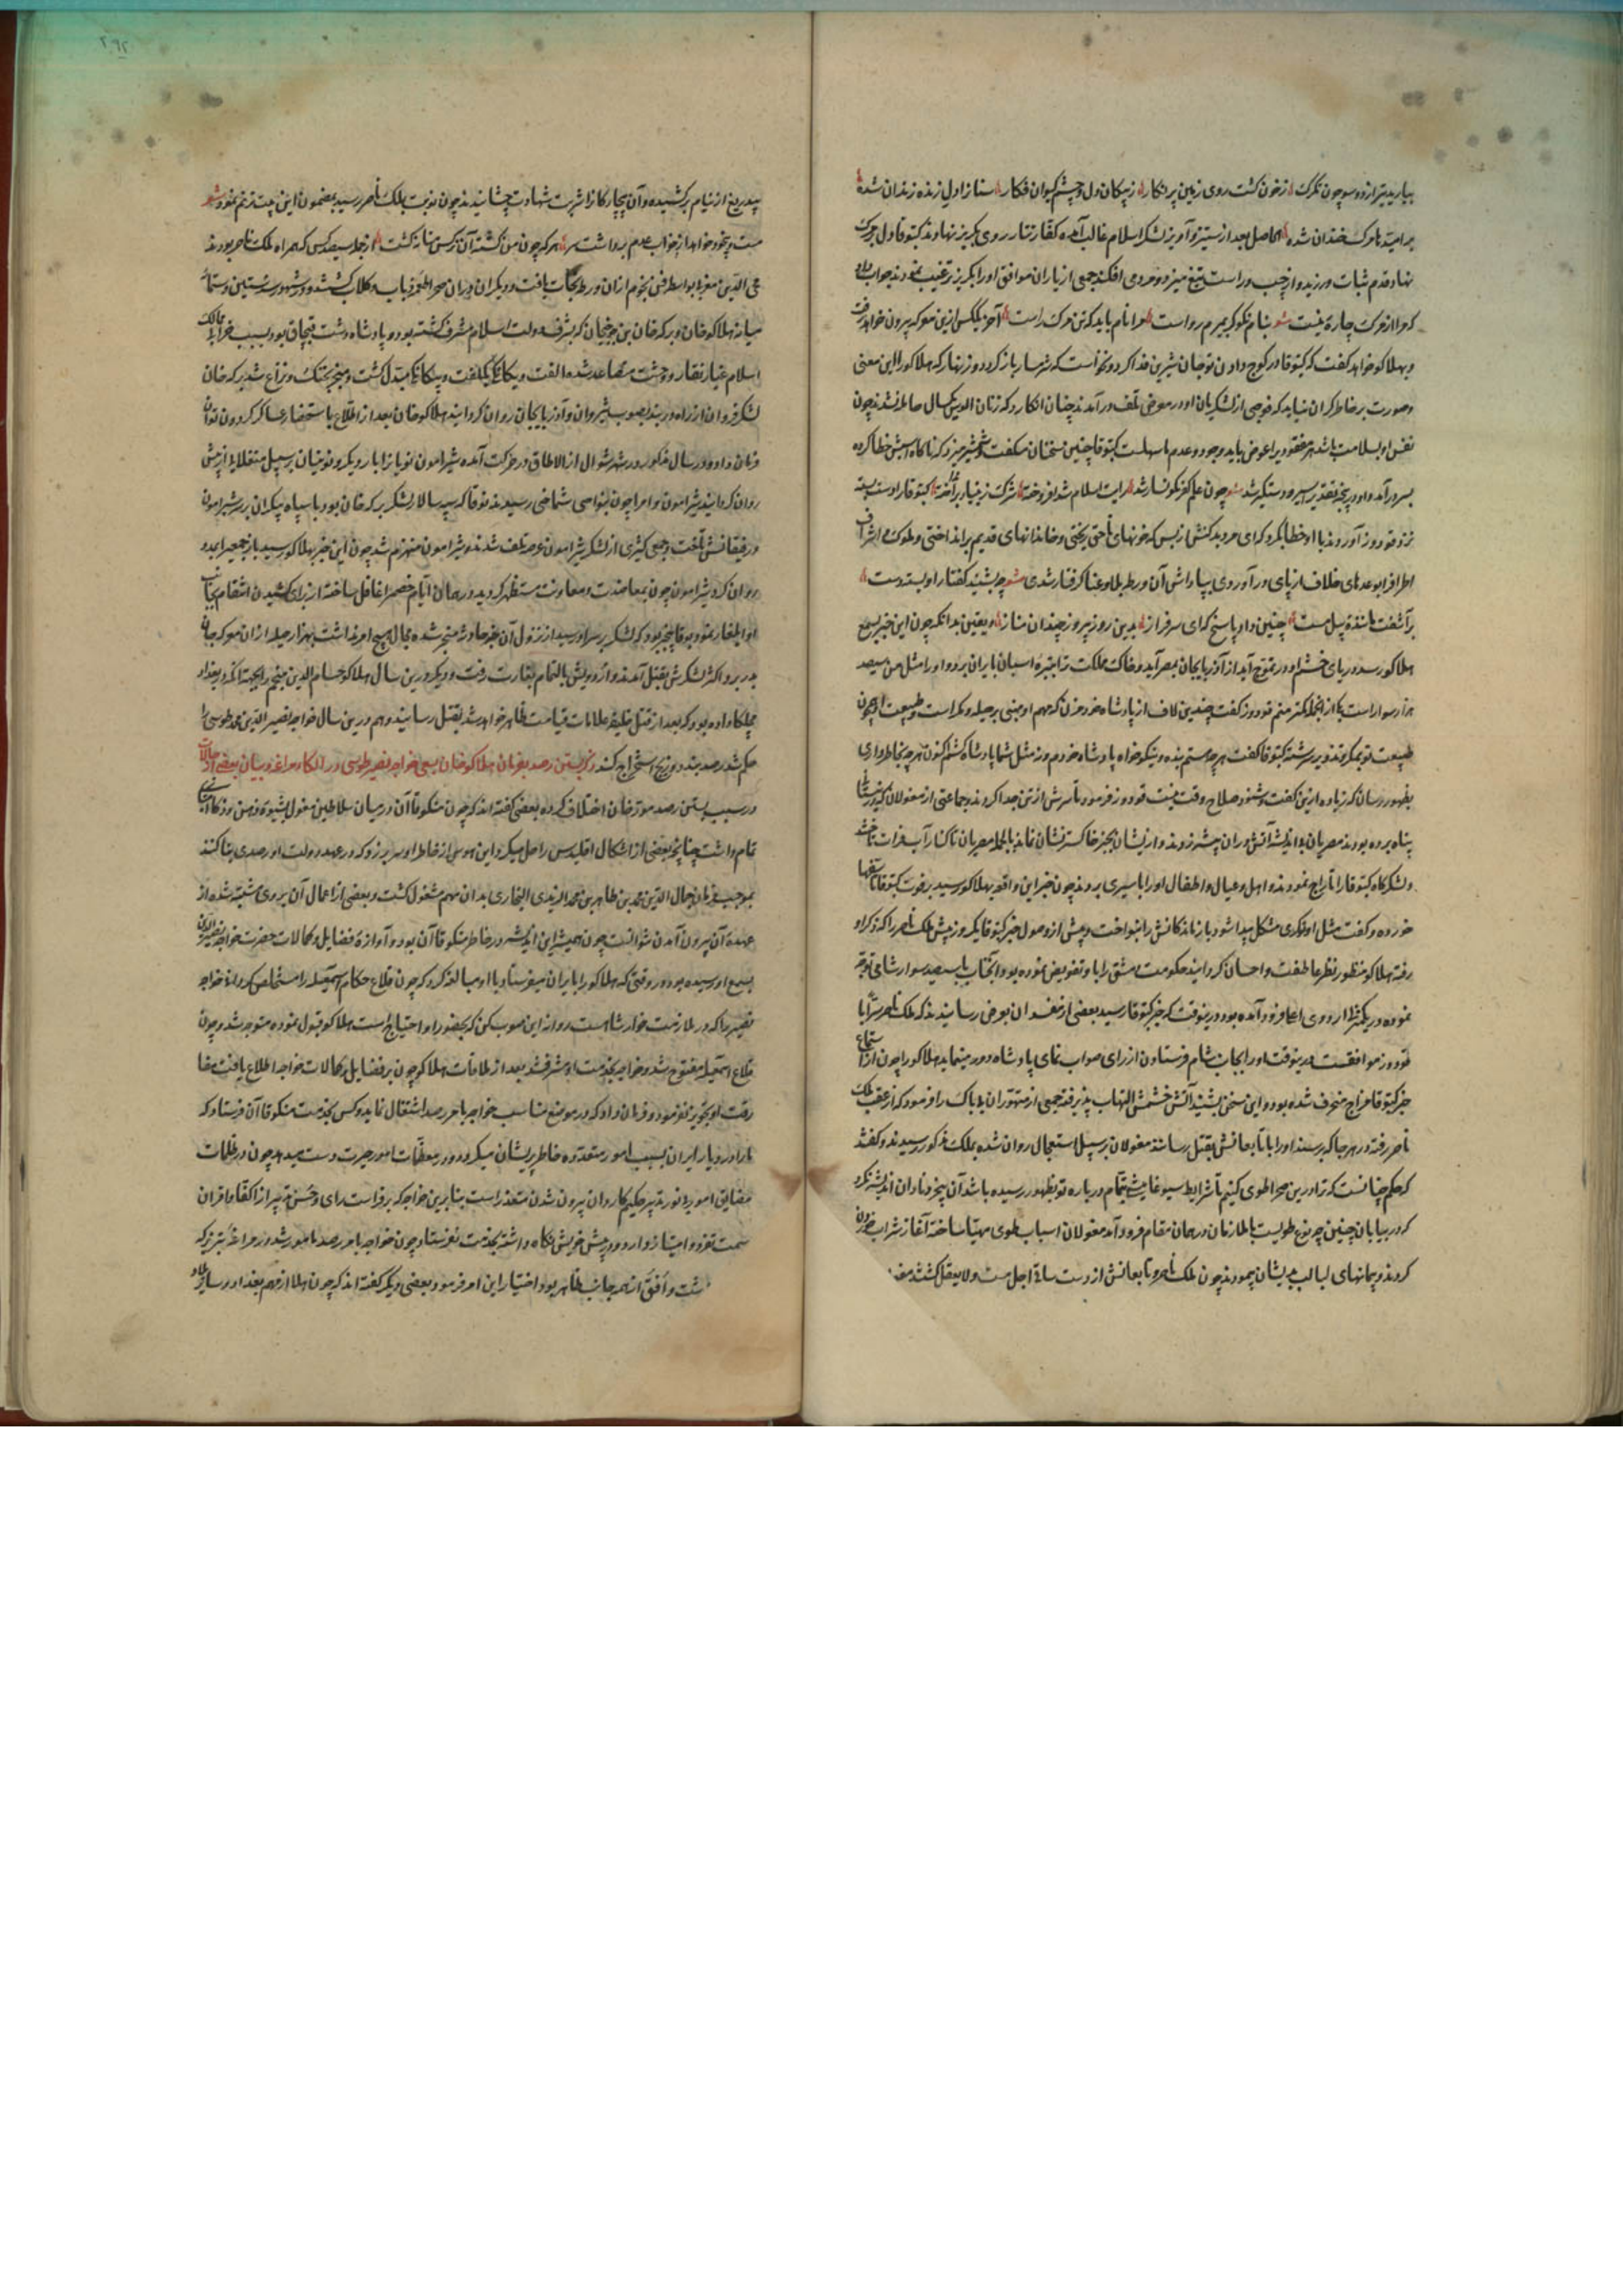 ببارید تیر از دو سو چون تگرک زخون کشت روی زمین پر نکار ز پیکان دل و چشم کیوان فکار سنانرا دل زنده زندان شده
بر امید با مرک خندان شده الحاصل بعد از ستیز و آویز لشکر اسلام غالب آمده کفار تتار روی بکریز نهادند کتبوقا دل بر مرک
نهاد و قدم ثبات ورزید و از چپ و راست تیغ میزد و مردمی افکند جمعی از یاران موافق او را بکریز ترغیب نمودند جواب داد
که مرا از مرک چاره نیست بنام نکو کر بمیرم رواست مرا نام باید که تن مرک راست آخر یکی کس ازین معرکه بیرون خواهد رفت
و بهلاکو خواهد کفت که کتبوقا در کوچ دادن تو جان شیرین فدا کرد و نخواست که شرمسار باز کردد و زنهار که هلاکو را این معنی
و صورت بر خاطر کران نیاید که فوجی از لشکریان او در معرض تلف در آمدند چنان انکارد که زنان الوس یکسال حامله نشدند چون
نفس او بسلامت باشد هر مفقودیرا عوض باید وجود و عدم ما سهلست کتبوقا چنین سخنان میکفت و شمشیر میزد که ناکاه اسبش خطا کرده
بسر در آمد و او در پنجه تقدیر اسیر و دستکیر شد چون علم کفر نکونسار شد رایت اسلام شد افروخته شرک ز بنیاد بر انداخته کتبوقا را دست بسته
نزد قودوز آوردند با او خطاب کرد که ای مرد بدکنش از بس که خونهای ناحق ریختی و خاندانهای قدیم بر انداختی و ملوک و اشراف
اطراف را بوعدهای خلاف از پای در آوردی بپاداش آن در ورطه بلا و عنا کرفتار شدی چو بشنید کفتار او بسته دست
برآشفت مانندهٔ پیل مست چنین داد پاسخ که ای سرفراز بدین روز پیروز چندان مناز و یقین بدانکه چون این خبر بسمع
هلاکو رسد دریای خشم او در تموج آید از آذربایجان بمصر آید و خاک مملکت ترا بتوبره اسبان بایران برد و او را مثل من سیصد
هزار سوار است یکی از انجمله کمتر منم قودوز کفت چندین لاف از پادشاه خود مزن که مهم او مبنی بر حیله و مکر است و طبیعت او چون
طبیعت تو بمکر و تزویر سرشته کتبوقا کفت هر چه هستم بنده و نیکو خواه پادشاه خودم و نه مثل شما پادشاه کش اکنون هر چه بخاطر داری
بظهور رسان که زیاده ازین کفت و شنود صلاح وقت نیست قودوز فرمود تا سرش از تن جدا کردند و جماعتی از مغولان که در نیستان
پناه برده بودند مصریان آتش در آن بیشه زدند و از ایشان بجز خاکستر نشان نماند بالجمله مصریان تا کنار آب فرات تاختند
و لشکرکاه کتبوقا را تاراج نمودند و اهل و عیال و اطفال او را باسیری بردند چون خبر این واقعه بهلاکو رسید بر فوت کتبوقا تاسفها
خورده و کفت مثل او نوکری مشکل پیدا شود بازماندکانش را بنواخت و پیش از وصول خبر کتبوقا یکروز پیش ملک ناصر را که ذکر او
رفته هلاکو منظور نظر عاطفت و احسان کردانیده حکومت دمشق را باو تفویض نموده بود و آنجناب با سیصد سوار شامی توجه
نموده در یکمنزل اردوی اعلا فرود آمده بود درینوقت که خبر کتبوقا رسید بعضی از مفسدان بعرض رسانیدند که ملک ناصر سرا با
قودوز موافقست درینوقت او را بجانب شام فرستادن از رای صواب نمای پادشاه دور مینماید هلاکو را چون از استماع
خبر کتبوقا مزاج منحرف شده بود و این سخن بشنید آتش خشمش التهاب پذیرفته جمعی از متهوران بیباک را فرمود که از عقب ملک
ناصر رفته در هر جا که برسند او را با تابعانش بقتل رسانند مغولان بر سبیل استعجال روان شده بملک مذکور رسیدند و کفتند
که حکم چنانست که ترا درین صحرا طوی کنیم تا شرایط سیورغامیشی بتمام درباره تو بظهور رسیده باشد آن بیخرد نادان اندیشه نکرد
که در بیابان چنین چه نوع طویست با ملازمان در همان مقام فرود آمد مغولان اسباب طوی مهیا ساخته آغاز شراب خوردن
کردند و پیمانهای لبالب بدیشان پیمودند چون ملک ناصر و تابعانش از دست ساقی اجل مست و لایعقل کشتند
بیدریغ از نیام برکشیده و آن بیچارکانرا شربت شهادت چشانیدند چون نوبت بملک ناصر رسید بمضمون این بیت ترنم نمود شعر
مست و بیخود خواهد از خواب عدم برداشت سر هر که چون من کشته آن نرکس مستانه کشت از جمله سیصد کس که همراه ملک ناصر بودند
محی الدین مغربی بواسطه فن نجوم از آن ورطه نجات یافت و دیکران در آن صحرا طعمه ذیاب و کلاب کشتند و در شهور سنه ستین و ستمائه
میانه هلاکو خان و برکه خان بن جوجی خان که بشرف دولت اسلام مشرف کشته بود و پادشاه دشت قبچاق بود بسبب خرابی ممالک
اسلام غبار نقار و وحشت متصاعد شده الفت و یکانکی بکلفت و بیکانکی مبدل کشت و منجر بجنک و نزاع شد برکه خان
لشکر فراوان از راه دربند بصوب شیروان و آذربایجان روان کردانید هلاکو خان بعد از اطلاع باستحضار عساکر کردون توان
فرمان داد و در سال مذکور در شهر شوال از الاطاق در حرکت آمده شیرامون نویانرا با دیکر نوینیان بر سبیل منقلای از پیش
روان کردانید شیرامون و امرا چون بنواحی شماخی رسیدند نوقا که سپه سالار لشکر برکه خان بود با سپاه بیکران بر سر شیرامون
و رفیقانش تاخت و جمعی کثیری از لشکر شیرامون عرصه تلف شدند و شیرامون منهزم شد چون این خبر بهلاکو رسید باز جمعیرا بمدد
روان کرد شیرامون چون بمعاضدت و معاونت مستظهر کردید در همان ایام خصم را غافل ساخته از برای کشیدن انتقام بجانب
او ایلغار نمود بوقا بیخبر بود که لشکر بر سر او رسید از نزول آن حادثه متحیر شده مجال هیچ امر نداشت بهزار حیله از آن معرکه جان
بدر برد و اکثر لشکرش بقتل آمدند و اردویش بالتمام بغارت رفت و دیکر درین سال هلاکو حسام الدین منجم را بجهة آنکه در بغداد
مچلکا داده بود که بعد از قتل خلیفه علامات قیامت ظاهر خواهد شد بقتل رسانیدند و هم درین سال خواجه نصیر الدین محمد طوسی را
حکم شد رصد بندد و زیج استخراج کند ذکر بستن رصد بفرمان هلاکو خان بسعی خواجه نصیر طوسی در الکاء مراغه و بیان بعضی از حالات
در سبب بستن رصد مورخان اختلاف کرده بعضی کفته اند که چون منکوقاآن در میان سلاطین مغول بشیوه ذهن و ذکا امتیاز
تمام داشت چنانچه بعضی از اشکال اقلیدس را حل میکرد این هوس از خاطر او سر بر زد که در عهد دولت او رصدی بنا کنند
بموجب فرمان جمال الدین محمد بن طاهر بن محمد الزیدی البخاری بدان مهم مشغول کشت و بعضی از اعمال آن بر وی مشتبه شده از
عهده آن بیرون آمدن نتوانست چون همیشه این اندیشه در خاطر منکوقاآن بود و آوازه فضایل و کمالات حضرت خواجه نصیر الدین
بسمع او رسیده بود در وقتی که هلاکو را بایران میفرستاد با او مبالغه کرد که چون قلاع حکام اسمعیلیه را مستخلص کردانی خواجه
نصیر را که در ملازمت خوارشاهست روانه این صوب کن که بحضور او احتیاج است هلاکو قبول نموده متوجه شد و چون
قلاع اسمعیلیه مفتوح شد و خواجه بخدمت او مشرف شد بعد از ملاقات هلاکو چون بر فضایل و کمالات خواجه اطلاع یافت مفا
رقت او تجویز نفرمود و فرمان داد که در موضع مناسب خواجه بامر رصد اشتغال نماید و کس بخدمت منکوقاآن فرستاد که
مارا در دیار ایران بسبب امور متعدده خاطر پریشان میکردد و در معظمات امور حیرت دست میدهد چون در ظلمات
مضایق امور بی نور تدبیر حکیم کاردان بیرون شدن متعذر است بنابرین خواجه که بفراست رای و حسن تدبیر از اکفا و اقران
سمت تفرد و امتیاز دارد در پیش خویش نکاه داشته بخدمت نفرستاد چون خواجه بامر رصد مامور شد در مراغه تبریز که
از همه جا ظاهر بود اختیار این امر فرمود و بعضی دیکر کفته اند که چون هلاکو از مهم بغداد و سایر بلاد